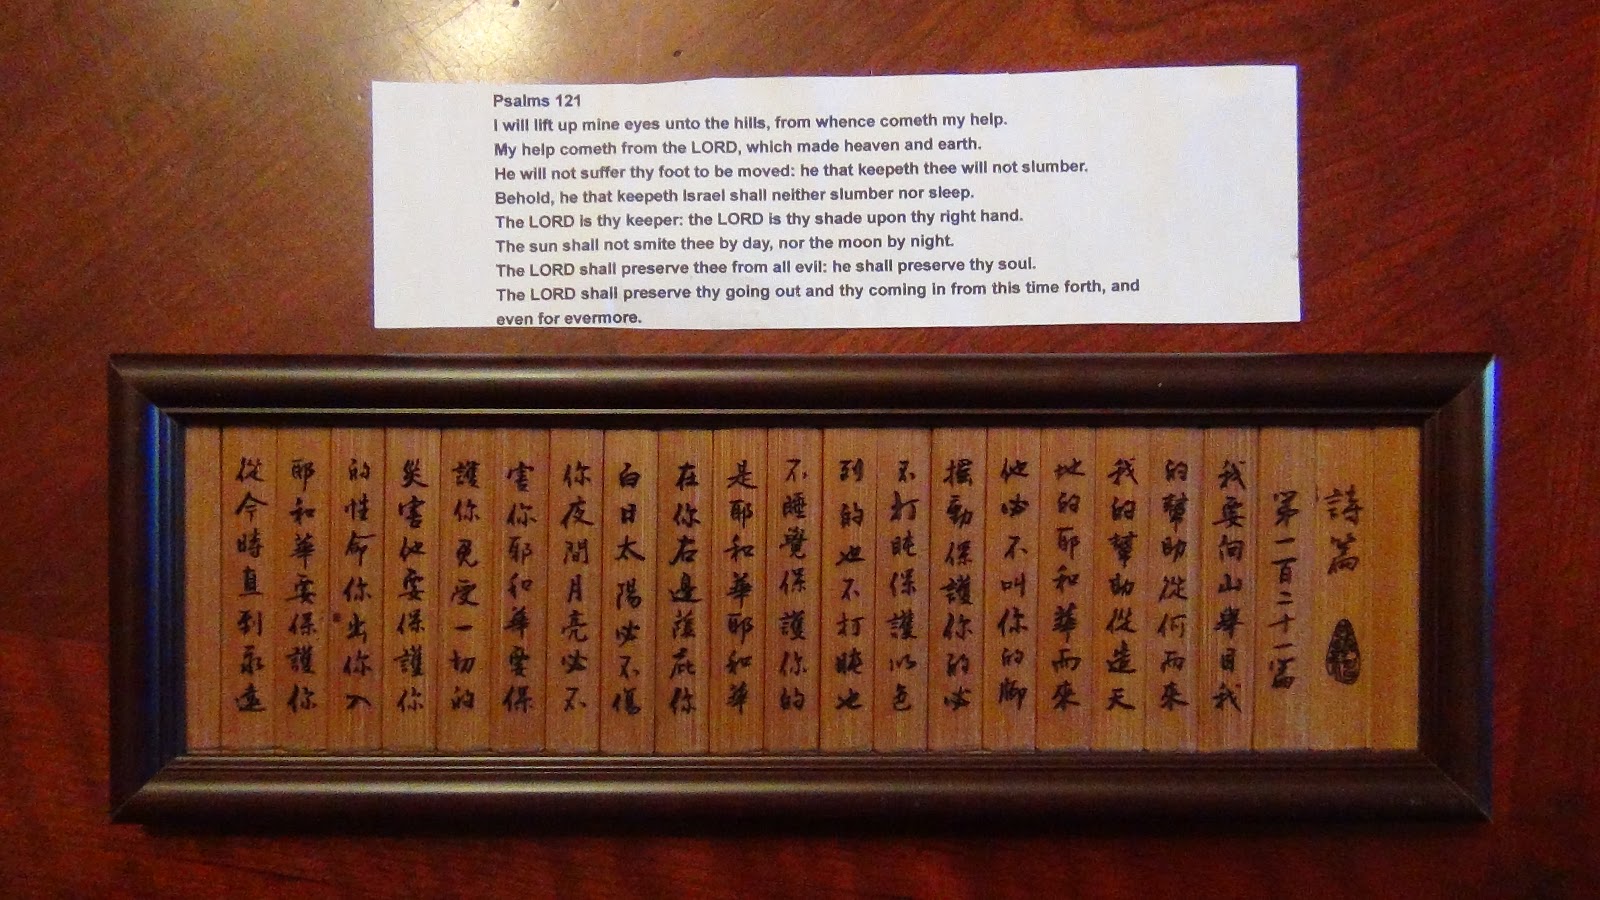 Psalms 121
I will lift up mine eyes unto the hills, from whence cometh my help.
My help cometh from the LORD, which made heaven and earth.
He will not suffer thy foot to be moved: he that keepeth thee will not slumber.
Behold, he that keepeth Israel shall neither slumber nor sleep.
The LORD is thy keeper: the LORD is thy shade upon thy right hand.
The sun shall not smite thee by day, nor the moon by night.
The LORD shall preserve thee from all evil: he shall preserve thy soul.
The LORD shall preserve thy going out and thy coming in from this time forth, and
even for evermore.
詩篇
第一百二十一篇
我要向山舉目我
的幫助從何而來
我的幫助從造天
地的耶和華而來
他必不叫你的腳
搖動保護你的必
不打盹保護以色
到的也不打盹也
不睡覺保護你的
是耶和華耶和華
在你右邊蔭庇你
白日太陽必不傷
你夜間月亮必不
害你耶和華要保
護你免受一切的
災害他要保護你
的性命你出你入
耶和華要保護你
從今時直到永遠